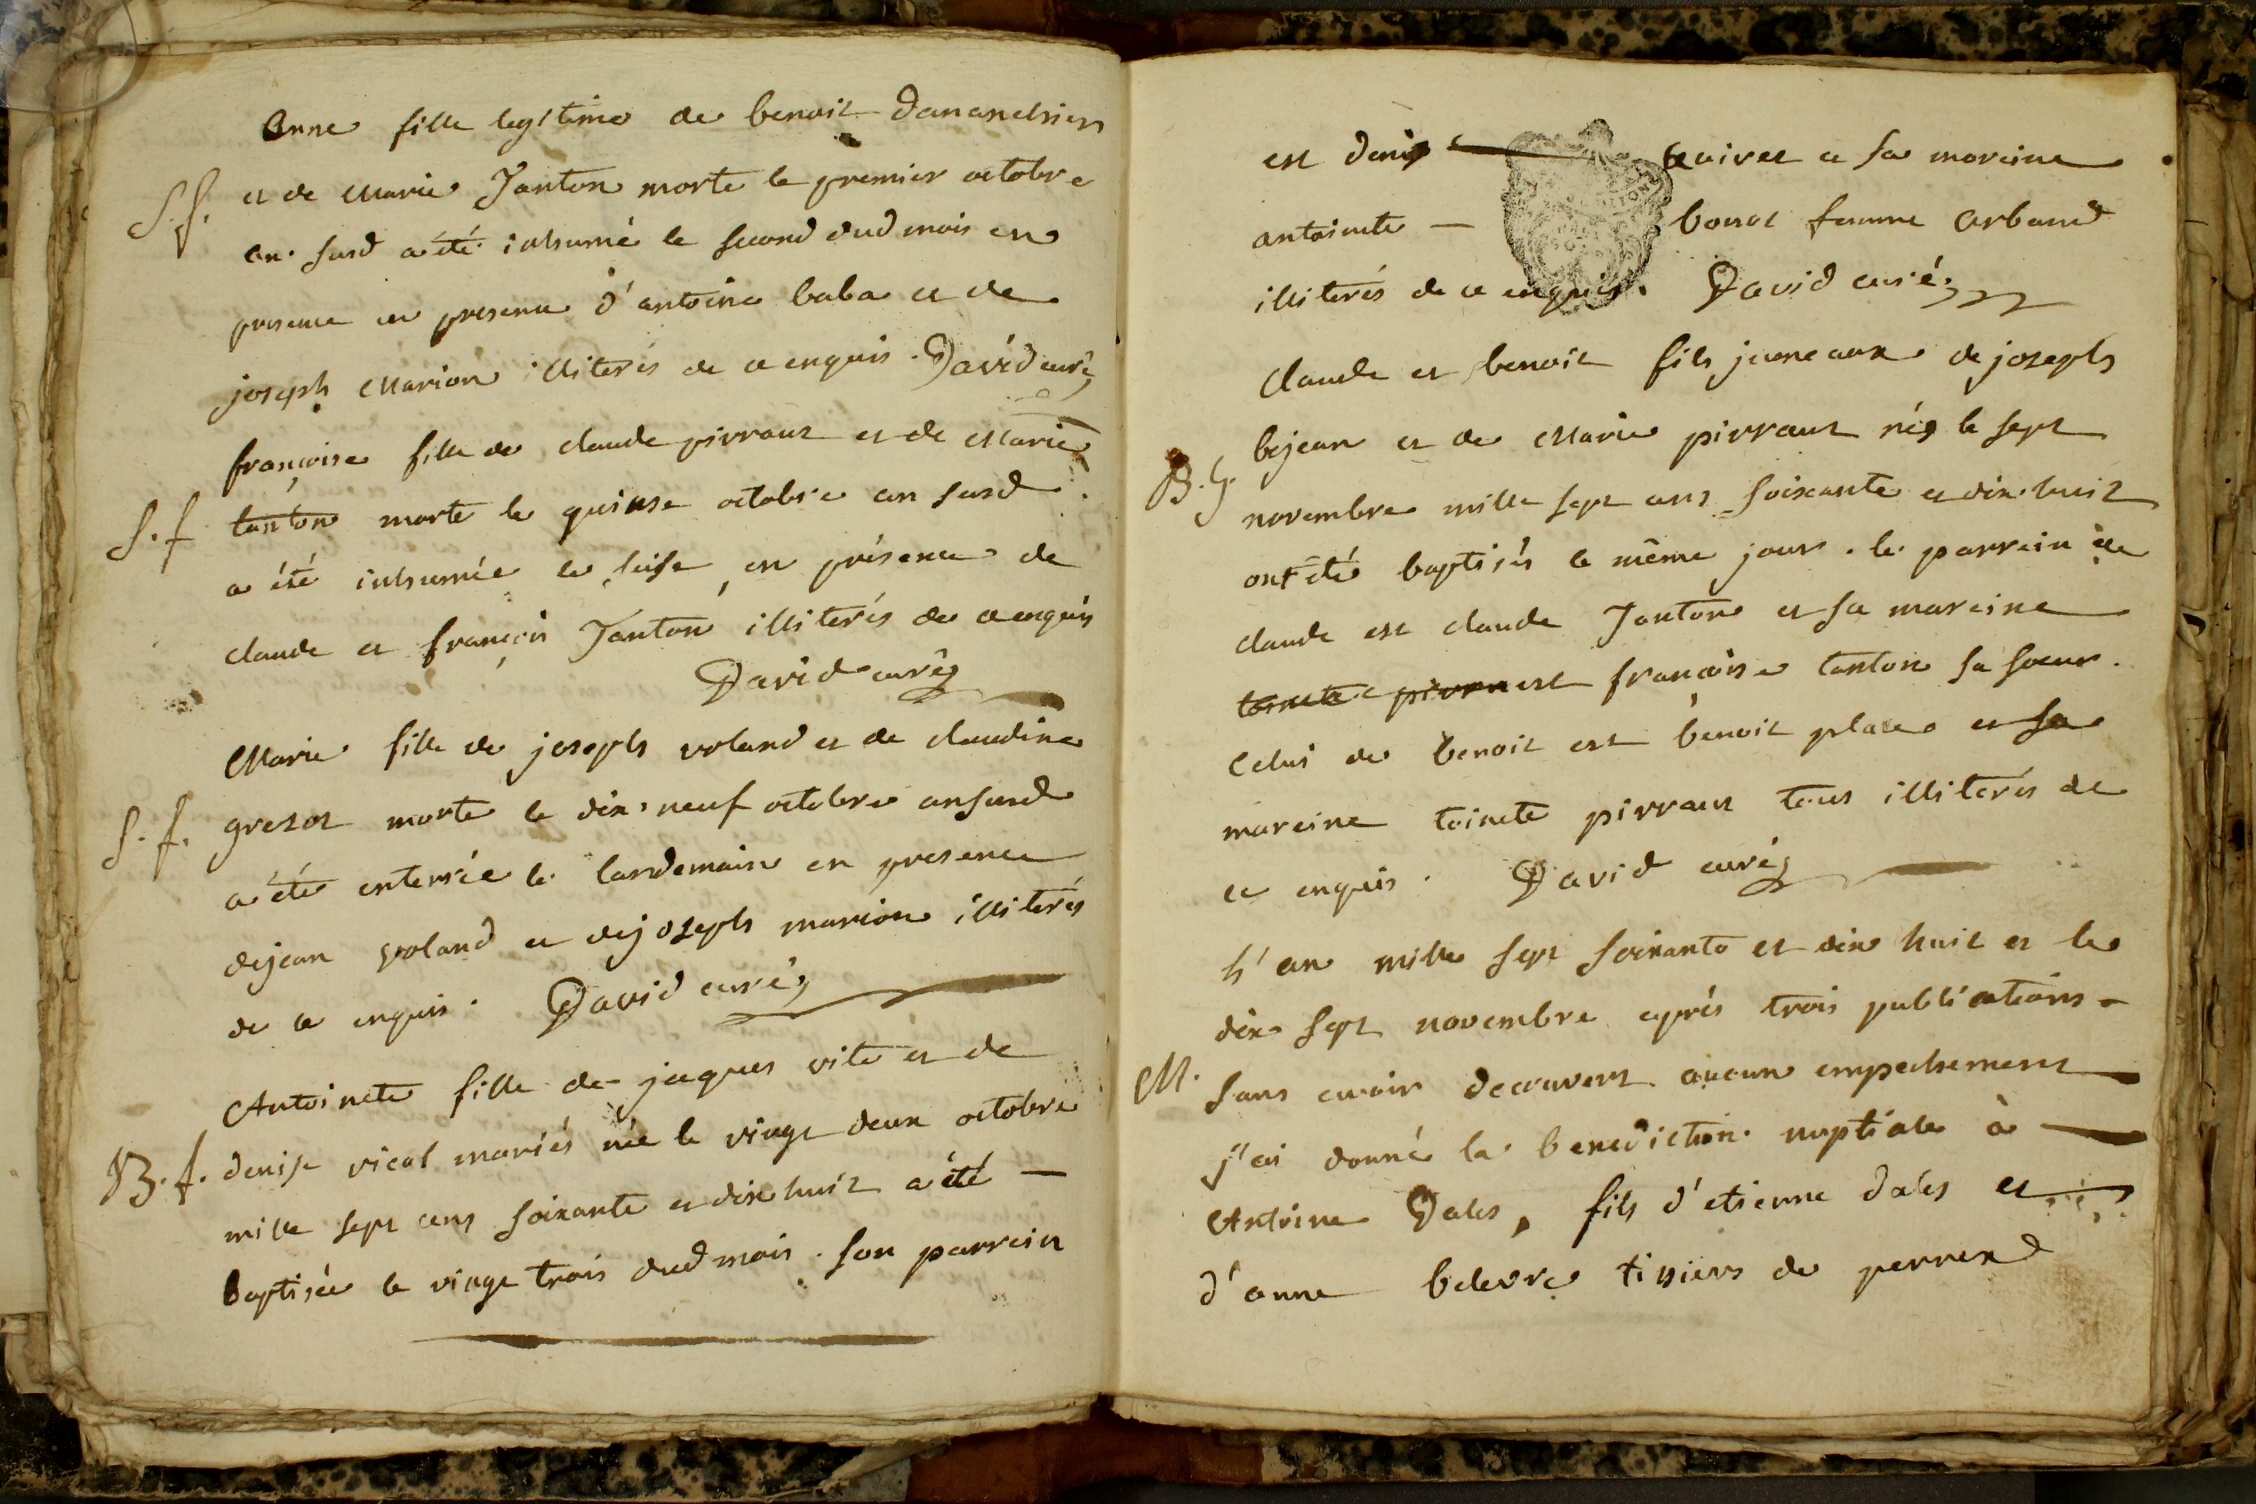 Anne fille legitime de benoit Dananchier
S.f. et de Marie Janton morte le premier octobre
an susd a été inhumé le second dud mois en
presence en presence d'antoine baba et de
joseph Marion illiterés de ce enquis. David curé
françoise fille de claude pirraut et de Marie
S.f tanton morte le quinse octobre an susd
a été inhumée le seise en présence de
claude et françois Janton illiterés de ce enquis
David curé
Marie fille de joseph voland et de claudine
S.f. gresot morte le dix-neuf octobre an susd
a été enterrée le landemain en presence
de jean voland et de joseph marion illiterés
de ce enquis. David curé
Antoinete fille de jaques vite et de
B.f. denise vical mariés née le vingt deux octobre
mille sept cens soixante et dix huit a été —
baptisée le vingt trois dud mois. son parrein
est denis — et sa mareine
antoinete — bonot femme Arband
illiterés de ce enquis. David curé
Claude et benoit fils jumeaux de joseph
B.G. bejean et de Marie pirraut nés le sept
novembre mille sept cens soixante et dix-huit
ont été baptisés le même jour. le parrein de
claude est claude Janton et sa mareine
toinete pirra est françoise tanton sa soeur.
Celui de benoit est benoit place et sa
mareine toinete pirraut tous illiterés de
ce enquis. David curé
L'an mille sept soixante et dix huit et le
dix sept novembre après trois publications -
M. sans avoir decouvert aucun empechement
j'ai donné la benediction nuptiale à
Antoine Dales, fils d'etienne dales et
d'anne belevre tissiers de perrex